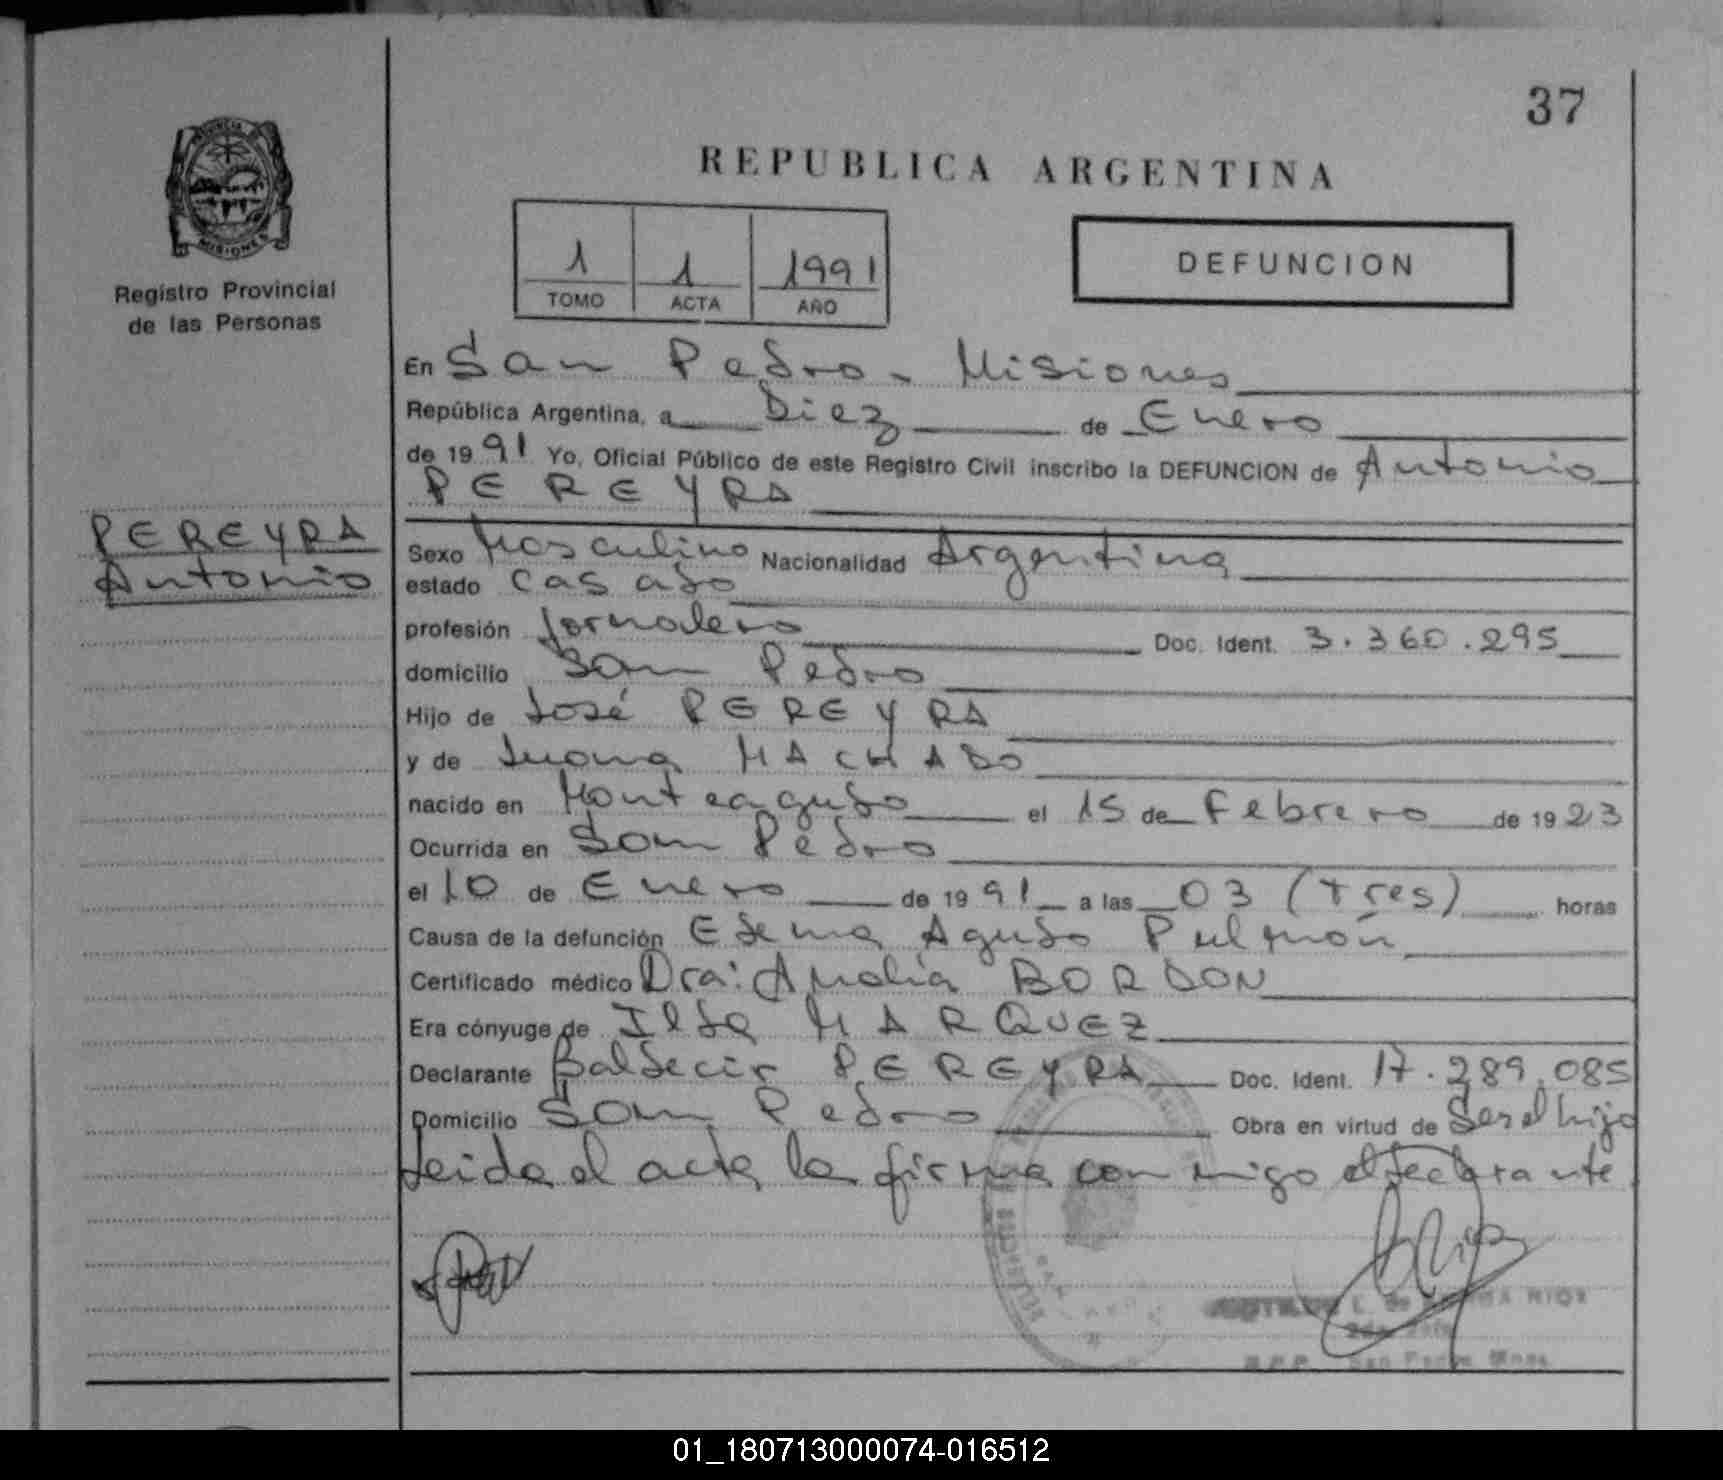 37
PROVINCIA DE
MISIONES
Registro Provincial
de las Personas
REPUBLICA ARGENTINA
1 1 1991
TOMO ACTA AÑO
DEFUNCION
En San Pedro - Misiones
República Argentina, a Diez de Enero
de 19 91 Yo, Oficial Público de este Registro Civil inscribo la DEFUNCION de Antonio
PEREYRA
PEREYRA
Antonio
Sexo Masculino Nacionalidad Argentina
estado casado
profesión Jornalero Doc. Ident. 3.360.295
domicilio San Pedro
Hijo de José PEREYRA
y de Juana MACHADO
nacido en Monteagudo el 15 de Febrero de 19 23
Ocurrida en San Pedro
el 10 de Enero de 19 91 a las 03 (tres) horas
Causa de la defunción Edema Agudo Pulmón
Certificado médico Dra: Amalia BORDON
Era cónyuge de Ilda MARQUEZ
Declarante Baldecir PEREYRA Doc. Ident. 17.289.085
Domicilio San Pedro Obra en virtud de Ser el hijo
Leida el acta la firma con migo el declarante
San Pedro Mnes
01_180713000074-016512